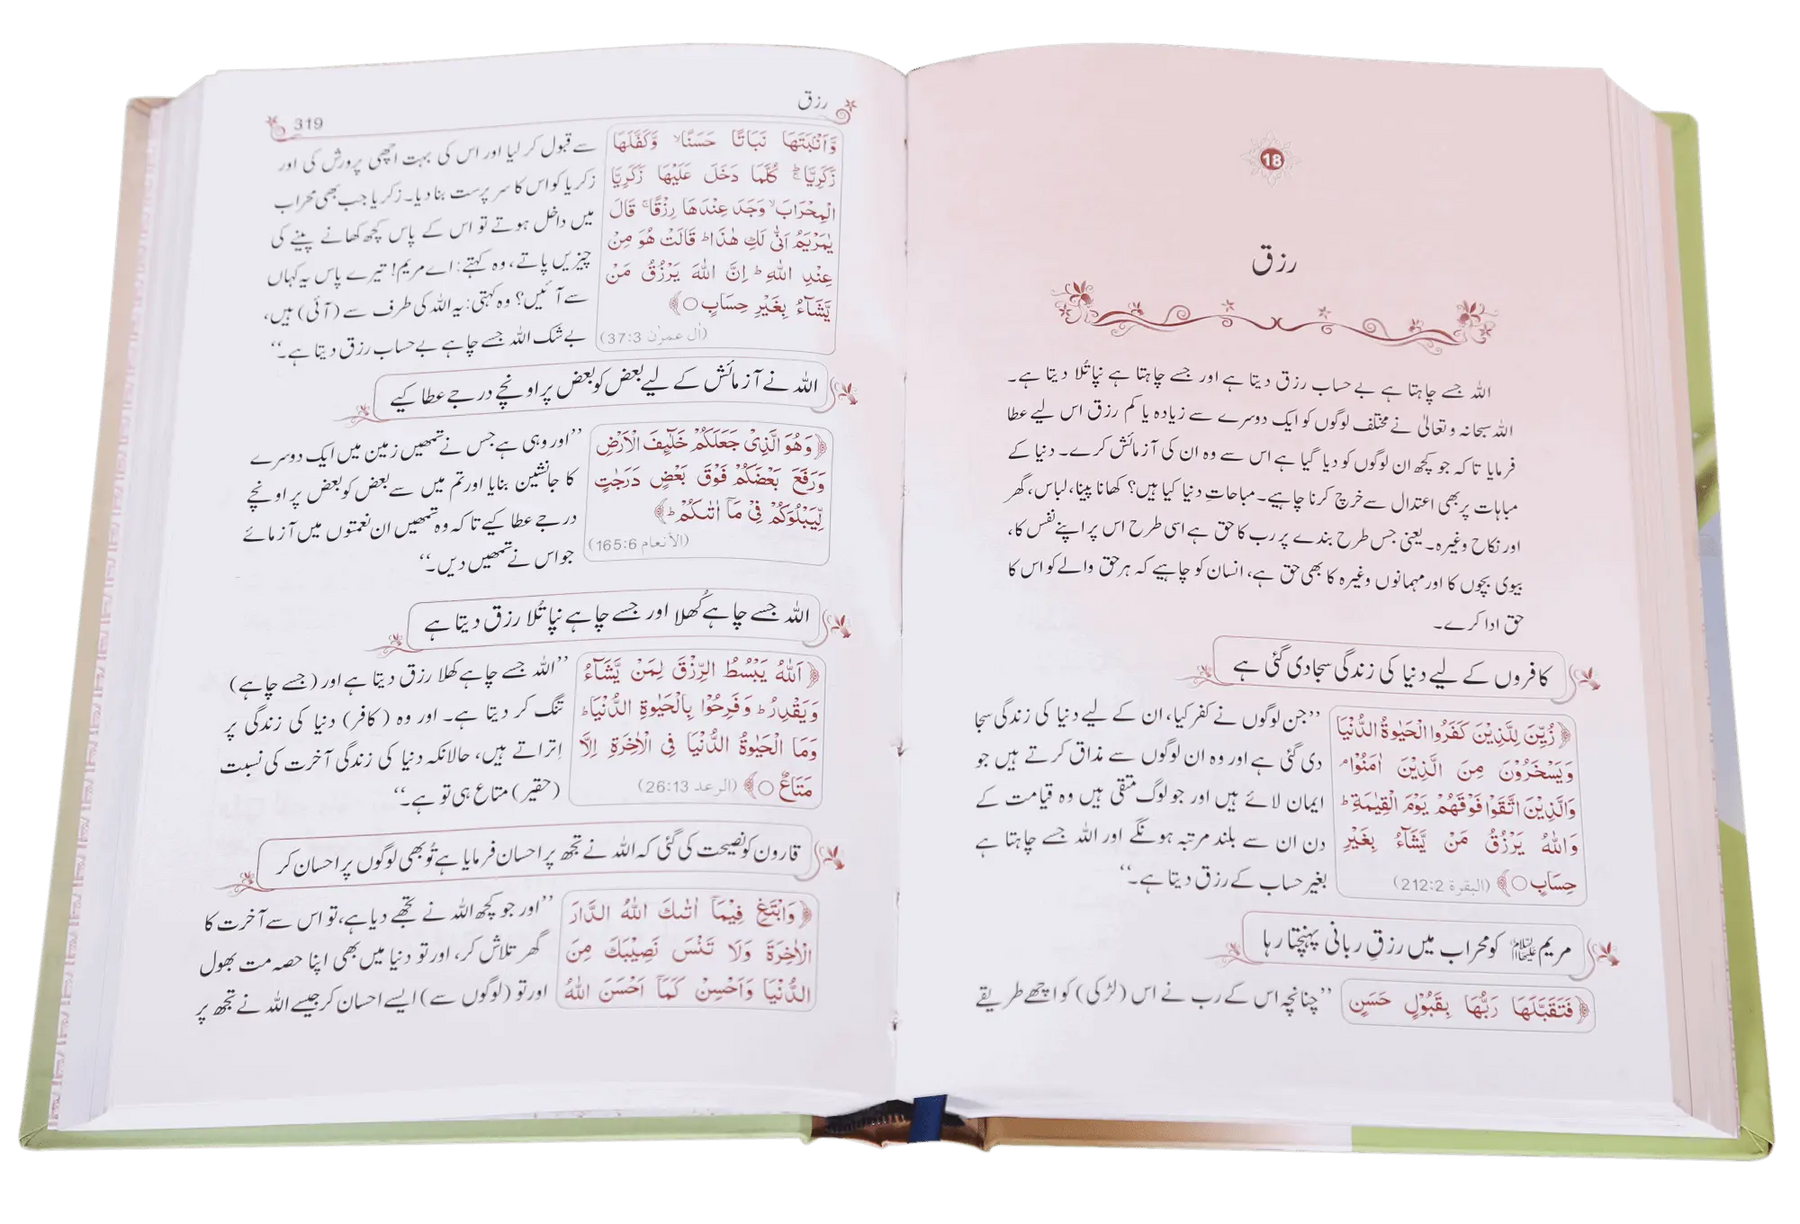 18
رزق
اللہ جسے چاہتا ہے بے حساب رزق دیتا ہے اور جسے چاہتا ہے نپا تُلا دیتا ہے۔
اللہ سبحانہ و تعالیٰ نے مختلف لوگوں کو ایک دوسرے سے زیادہ یا کم رزق اس لیے عطا
فرمایا تاکہ جو کچھ ان لوگوں کو دیا گیا ہے اس سے وہ ان کی آزمائش کرے۔ دنیا کے
مباہات پر بھی اعتدال سے خرچ کرنا چاہیے۔ مباحاتِ دنیا کیا ہیں؟ کھانا پینا، لباس، گھر
اور نکاح وغیرہ۔ یعنی جس طرح بندے پر رب کا حق ہے اسی طرح اس پر اپنے نفس کا،
بیوی بچوں کا اور مہمانوں وغیرہ کا بھی حق ہے، انسان کو چاہیے کہ ہر حق والے کو اس کا
حق ادا کرے۔
کافروں کے لیے دنیا کی زندگی سجا دی گئی ہے
﴿زُيِّنَ لِلَّذِيْنَ كَفَرُوا الْحَيٰوةُ الدُّنْيَا
وَيَسْخَرُوْنَ مِنَ الَّذِيْنَ اٰمَنُوْا ۘ
وَالَّذِيْنَ اتَّقَوْا فَوْقَهُمْ يَوْمَ الْقِيٰمَةِ ؕ
وَاللّٰهُ يَرْزُقُ مَنْ يَّشَآءُ بِغَيْرِ
حِسَابٍ ○﴾ (البقرة 212:2)
’’جن لوگوں نے کفر کیا، ان کے لیے دنیا کی زندگی سجا
دی گئی ہے اور وہ ان لوگوں سے مذاق کرتے ہیں جو
ایمان لائے ہیں اور جو لوگ متقی ہیں وہ قیامت کے
دن ان سے بلند مرتبہ ہونگے اور اللہ جسے چاہتا ہے
بغیر حساب کے رزق دیتا ہے۔‘‘
مریم علیہا السلام کو محراب میں رزقِ ربانی پہنچتا رہا
﴿فَتَقَبَّلَهَا رَبُّهَا بِقَبُوْلٍ حَسَنٍ
’’چنانچہ اس کے رب نے اس (لڑکی) کو اچھے طریقے
رزق
319
وَّاَنْۢبَتَهَا نَبَاتًا حَسَنًا ۙ وَّكَفَّلَهَا
زَكَرِيَّا ؕ كُلَّمَا دَخَلَ عَلَيْهَا زَكَرِيَّا
الْمِحْرَابَ ۙ وَجَدَ عِنْدَهَا رِزْقًا ۚ قَالَ
يٰمَرْيَمُ اَنّٰى لَكِ هٰذَا ؕ قَالَتْ هُوَ مِنْ
عِنْدِ اللّٰهِ ؕ اِنَّ اللّٰهَ يَرْزُقُ مَنْ
يَّشَآءُ بِغَيْرِ حِسَابٍ ○﴾
(اٰل عمرٰن 37:3)
سے قبول کر لیا اور اس کی بہت اچھی پرورش کی اور
زکریا کو اس کا سرپرست بنا دیا۔ زکریا جب بھی محراب
میں داخل ہوتے تو اس کے پاس کچھ کھانے پینے کی
چیزیں پاتے، وہ کہتے: اے مریم! تیرے پاس یہ کہاں
سے آئیں؟ وہ کہتی: یہ اللہ کی طرف سے (آئی) ہیں،
بے شک اللہ جسے چاہے بے حساب رزق دیتا ہے۔‘‘
اللہ نے آزمائش کے لیے بعض کو بعض پر اونچے درجے عطا کیے
﴿وَهُوَ الَّذِيْ جَعَلَكُمْ خَلٰٓئِفَ الْاَرْضِ
وَرَفَعَ بَعْضَكُمْ فَوْقَ بَعْضٍ دَرَجٰتٍ
لِّيَبْلُوَكُمْ فِيْ مَآ اٰتٰىكُمْ ؕ﴾
(الأنعام 165:6)
’’اور وہی ہے جس نے تمھیں زمین میں ایک دوسرے
کا جانشین بنایا اور تم میں سے بعض کو بعض پر اونچے
درجے عطا کیے تاکہ وہ تمھیں ان نعمتوں میں آزمائے
جو اس نے تمھیں دیں۔‘‘
اللہ جسے چاہے کُھلا اور جسے چاہے نپا تُلا رزق دیتا ہے
﴿اَللّٰهُ يَبْسُطُ الرِّزْقَ لِمَنْ يَّشَآءُ
وَيَقْدِرُ ؕ وَفَرِحُوْا بِالْحَيٰوةِ الدُّنْيَا ؕ
وَمَا الْحَيٰوةُ الدُّنْيَا فِي الْاٰخِرَةِ اِلَّا
مَتَاعٌ ○﴾ (الرعد 26:13)
’’اللہ جسے چاہے کھلا رزق دیتا ہے اور (جسے چاہے)
تنگ کر دیتا ہے۔ اور وہ (کافر) دنیا کی زندگی پر
اِتراتے ہیں، حالانکہ دنیا کی زندگی آخرت کی نسبت
(حقیر) متاع ہی تو ہے۔‘‘
قارون کو نصیحت کی گئی کہ اللہ نے تجھ پر احسان فرمایا ہے تُو بھی لوگوں پر احسان کر
﴿وَابْتَغِ فِيْمَآ اٰتٰىكَ اللّٰهُ الدَّارَ
الْاٰخِرَةَ وَلَا تَنْسَ نَصِيْبَكَ مِنَ
الدُّنْيَا وَاَحْسِنْ كَمَآ اَحْسَنَ اللّٰهُ
’’اور جو کچھ اللہ نے تجھے دیا ہے، تو اس سے آخرت کا
گھر تلاش کر، اور تو دنیا میں بھی اپنا حصہ مت بھول
اور تو (لوگوں سے) ایسے احسان کر جیسے اللہ نے تجھ پر